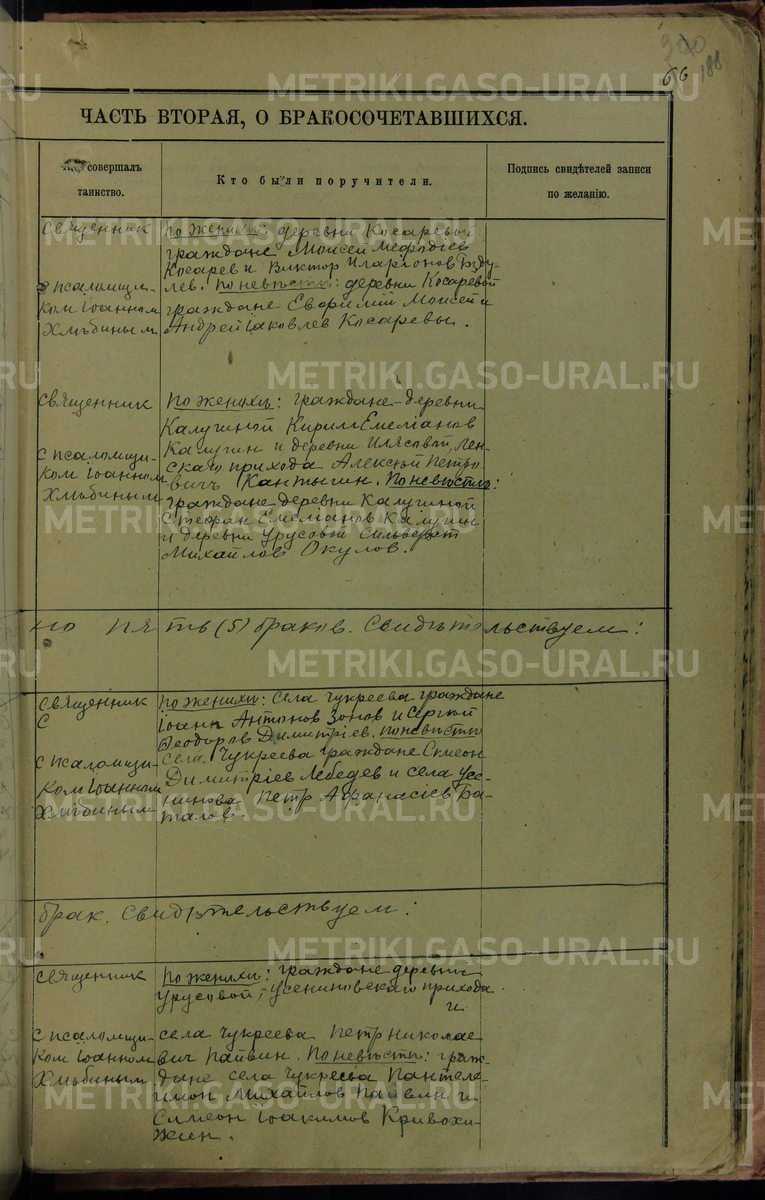 300
66 188
ЧАСТЬ ВТОРАЯ, О БРАКОСОЧЕТАВШИХСЯ.
совершалъ
таинство.
Кто были поручители.
Подпись свидѣтелей записи
по желанію.
Священник
с псаломщи-
ком Іоанном
Хлѣбиным
По женихѣ: деревни Косаревой
граждане Моисей Мефодіев
Косарев и Виктор Иларіонов Бзду-
лев. По невѣстѣ: деревни Косаревой
граждане Моисей и
Андрей Іаковлев Косаревы.
Священник
с псаломщи-
ком Іоанном
Хлѣбиным
По женихѣ: граждане деревни
Калугиной Кирилл Емеліанов
Калугин и деревни Илясовой, Лен-
скаго прихода Алексѣй Петро
вичъ Кантыгин. По невѣстѣ:
граждане деревни Калугиной
Стефан Емеліанов Калугин
и деревни Урусовой Сильвестр
Михайлов Окулов.
но пять (5) браков. Свидѣтельствуем:
Священник
С
с псаломщи-
ком Іоанном
Хлѣбиным
По женихѣ: села Чукреева граждане
Іоанн Антонов Зонов и Сергѣй
Ѳеодоров Димитріев. По невѣстѣ
села Чукреева граждане Симеон
Димитріев Лебедев и села Усе-
нинова Петр Афанасіев Ба-
талов.
брак. Свидѣтельствуем:
Священник
с псаломщи-
ком Іоанном
Хлѣбиным
По женихѣ: граждане деревни
Урусовой, Усениновскаго прихода
и
села Чукреева Петр Николае
вич Пайвин. По невѣстѣ: граж-
дане села Чукреева Пантеле-
имон Михайлов Пайвин и
Симеон Іоакимов Кривохи-
жин.
METRIKI.GASO-URAL.RU